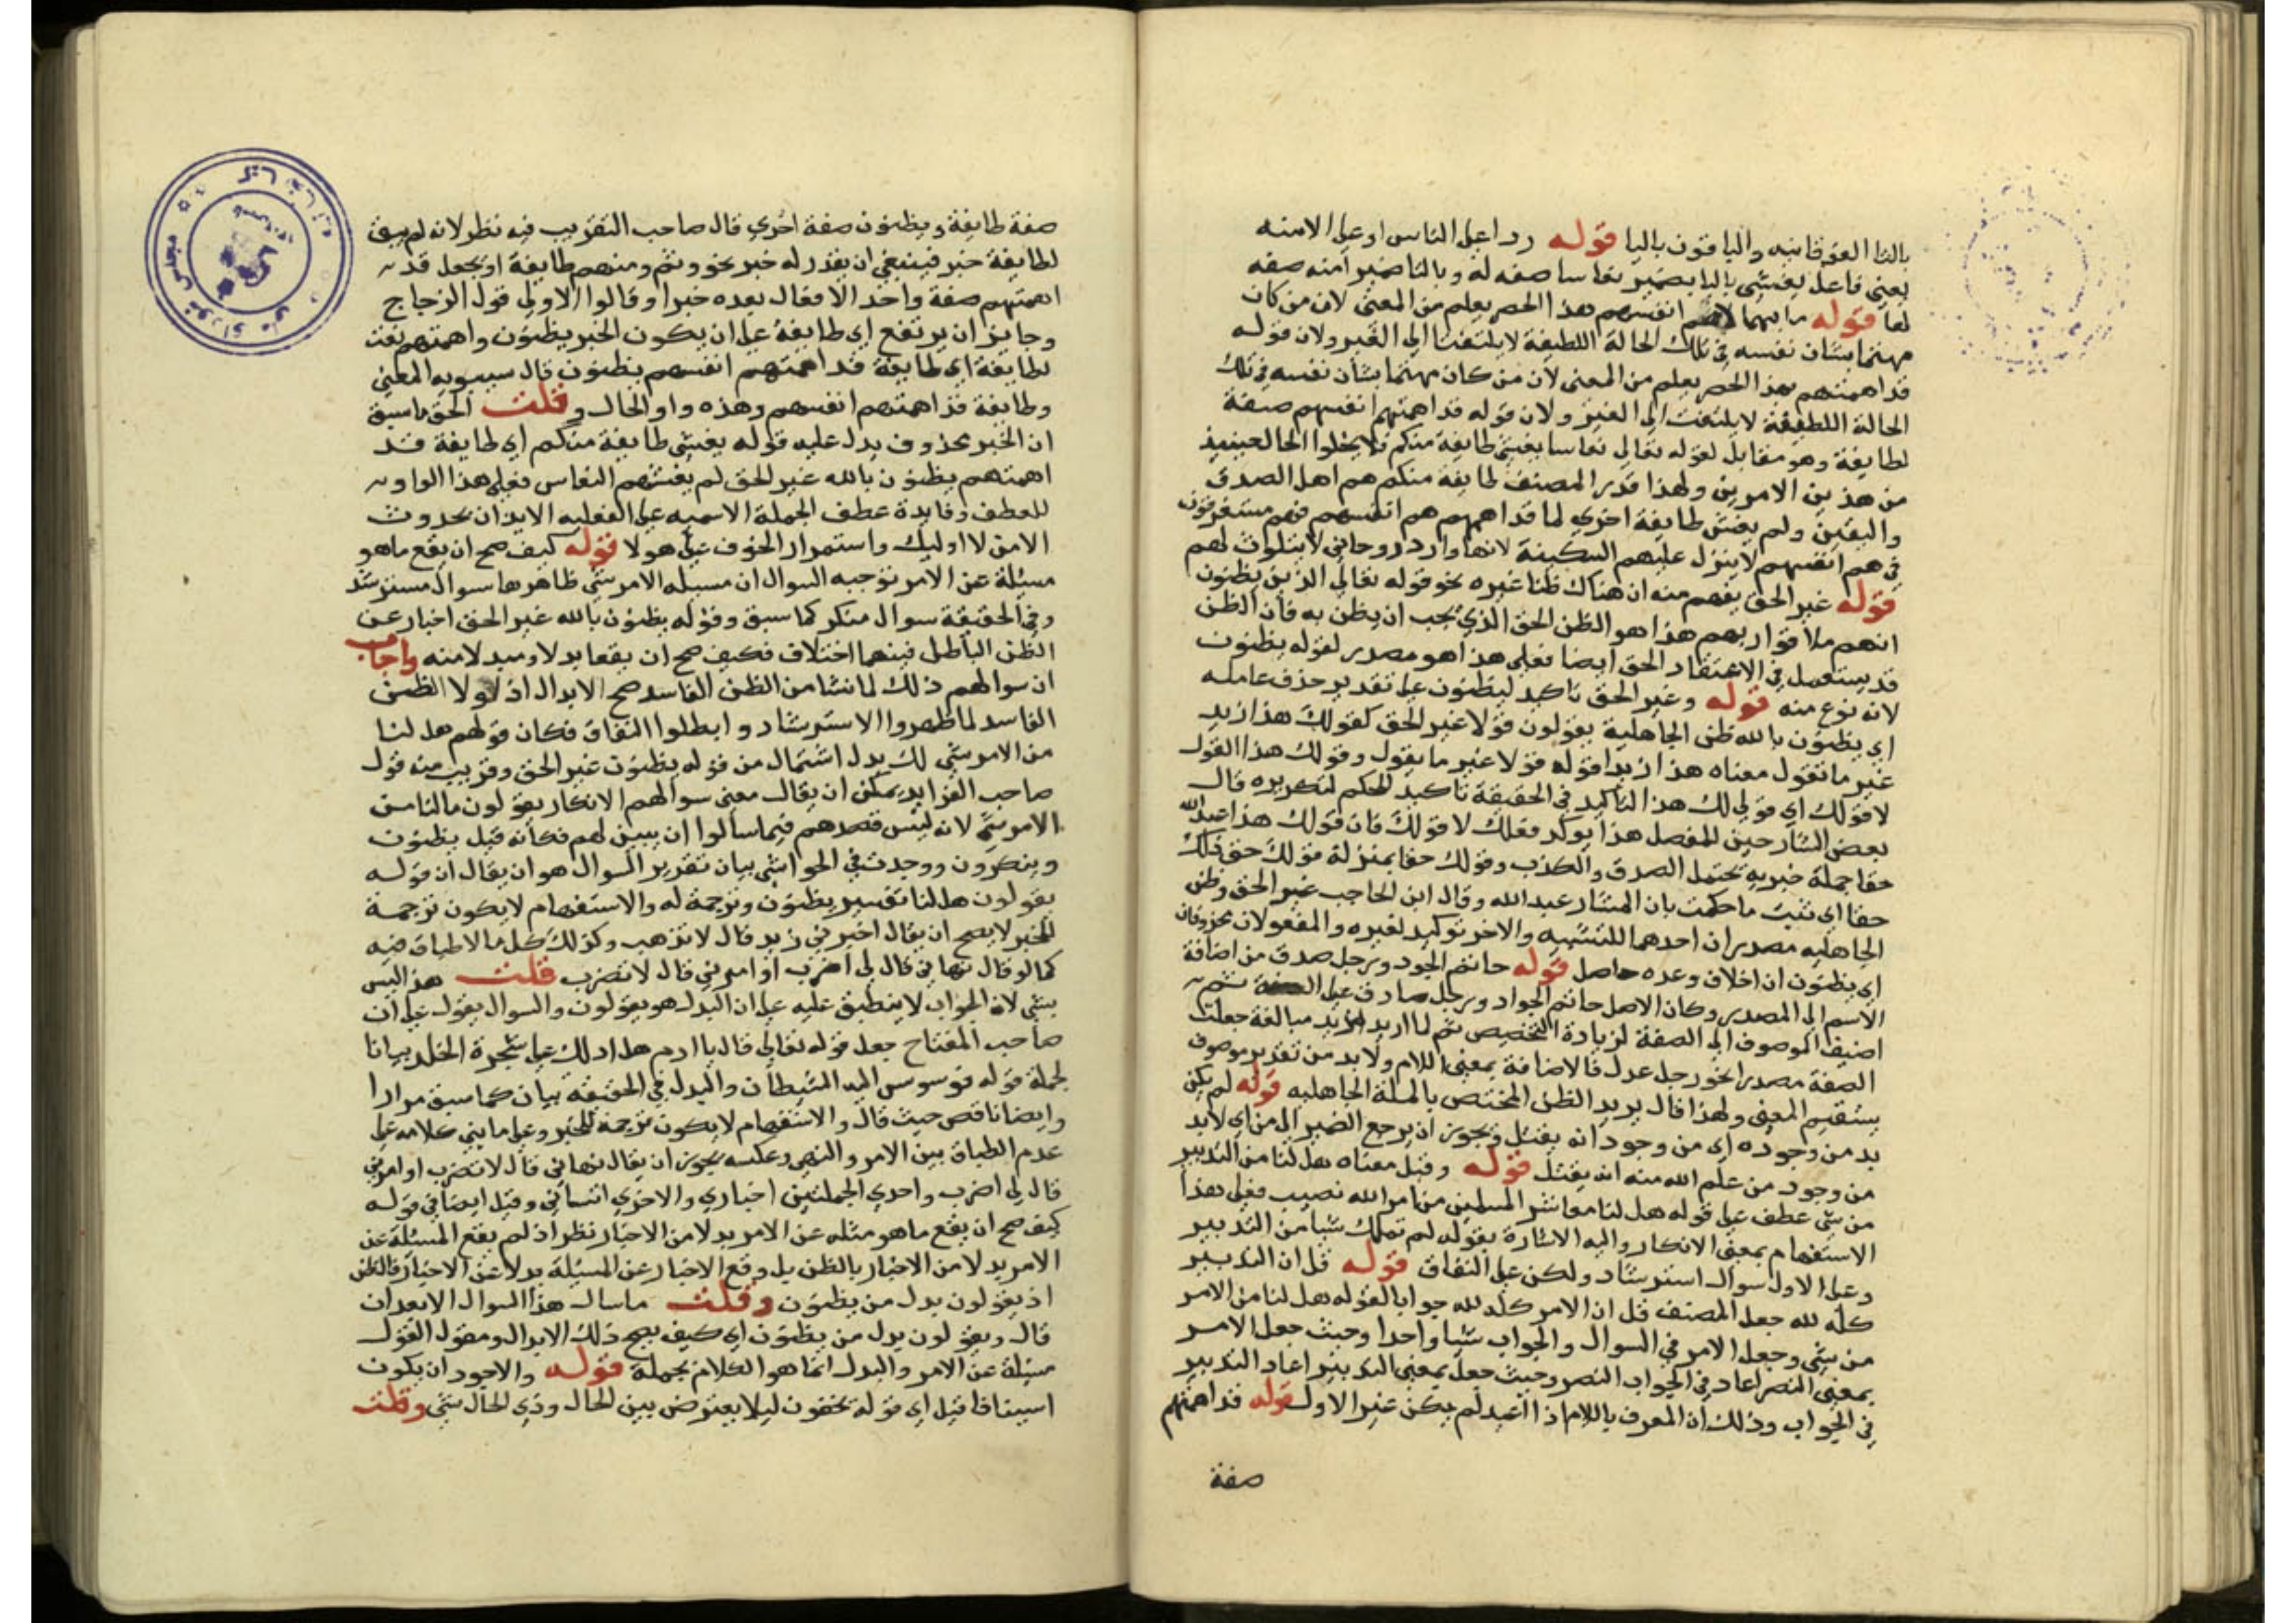 بالتا الفوقانيه والباقون باليا قوله ردا على النعاس او على الامنه
يعنى فاعل يغشى باليا بضمير نعاسا صفه له وبالتا ضمير امنه صفه
لها قوله ما بهم الا هم انفسهم هذا الحصر يعلم من المعنى لان من كان
مهتما بشان نفسه في تلك الحالة اللطيفة لا يلتفت الى الغير ولان قوله
قد اهمتهم هذا الحصر يعلم من المعنى لان من كان مهتما بشان نفسه في تلك
الحالة اللطيفة لا يلتفت الى الغير ولان قوله قد اهمتهم انفسهم صفة
لطايفة وهو مقابل لقوله تعالى نعاسا يغشى طايفة منكم فلا يخلوا الحال حينيذ
من هذين الامرين ولهذا قدر المصنف طايفة منكم هم اهل الصدق
واليقين ولم يغش طايفة اخري لما قد اهمهم هم انفسهم فهم مستغرقون
في هم انفسهم لا ينزل عليهم السكينة لانها وارد روحاني لا يتلوث لهم
قوله غير الحق يفهم منه ان هناك ظنا غيره نحو قوله تعالى الذين يظنون
انهم ملاقوا ربهم هذا هو الظن الحق الذي يجب ان يظن به فان الظن
قد يستعمل في الاعتقاد الحق ايضا فعلى هذا هو مصدر لقوله يظنون
لانه نوع منه قوله وغير الحق تاكيد ليظنون على تقدير حذف عامله
اي يظنون بالله ظن الجاهلية يقولون قولا غير الحق كقولك هذا زيد
غير ما تقول معناه هذا زيد اقوله قولا غير ما يقول وقولك هذا القول
لا قولك اي قولي لك هذا التاكيد في الحقيقة تاكيد للحكم لتكريره قال
بعض الشارحين للمفصل هذا يوكد فعلك لا قولك فان قولك هذا عبد الله
حقا جملة خبريه تحتمل الصدق والكذب وقولك حقا بمنزلة قولك حق ذلك
حقا اي تثبت ما حكمت بان المشار عبد الله وقال ابن الحاجب غير الحق وظن
الجاهليه مصدران احدهما للتشبيه والاخر توكيد لغيره والمفعولان محذوفان
اي يظنون ان اخلاف وعده حاصل قوله حاتم الجود ورجل صدق من اضافة
الاسم الى المصدر وكان الاصل حاتم الجواد ورجل صادق على الصفة ثم
اضيف الموصوف الى الصفة لزيادة التخصيص ثم لما اريد مزيد مبالغة جعلت
الصفة مصدرا نحو رجل عدل فالاضافة بمعنى اللام ولا بد من تقدير موصوف
يستقيم المعنى ولهذا قال يريد الظن المختص بالملة الجاهليه قوله لم يكن
بد من وجوده اي من وجود انه يقتل ويجوز ان يرجع الضمير الى من اي لا بد
من وجود من علم الله منه انه يقتل قوله وقيل معناه هل لنا من التدبير
من شي عطف على قوله هل لنا معاشر المسلمين من امر الله نصيب فعلى هذا
الاستفهام بمعنى الانكار واليه الاشارة بقوله لم نملك شيا من التدبير
وعلى الاول سوال استرشاد ولكن على النفاق قوله قل ان التدبير
كله لله جعل المصنف قل ان الامر كله لله جوابا لقوله هل لنا من الامر
من شي وجعل الامر في السوال والجواب شيا واحدا وحيث جعل الامر
بمعنى النصر اعاد في الجواب النصر وحيث جعل بمعنى التدبير اعاد التدبير
في الجواب وذلك ان المعرف باللام اذا اعيد لم يكن غير الاول قوله قد اهمتهم
صفة
صفة طايفة ويظنون صفة اخري قال صاحب التقريب فيه نظر لانه لم يبق
لطايفة خبر فينبغي ان يقدر له خبر نحو وثم ومنهم طايفة او يجعل قد
اهمتهم صفة واحد الافعال بعده خبرا وقالوا الاولى قول الزجاج
وجايز ان يرتفع اي طايفة على ان يكون الخبر يظنون واهمتهم نعت
لطايفة اي طايفة قد اهمتهم انفسهم يظنون قال سيبويه المعنى
وطايفة قد اهمتهم انفسهم وهذه واو الحال وقلت الحق ما سبق
ان الخبر محذوف يدل عليه قوله يغشى طايفة منكم اي طايفة قد
اهمتهم يظنون بالله غير الحق لم يغشهم النعاس فعلى هذا الواو
للعطف وفايدة عطف الجملة الاسميه على الفعليه الايذان بحدوث
الامن لاوليك واستمرار الخوف على هولا قوله كيف صح ان يقع ما هو
مسئلة عن الامر توجيه السوال ان مسئلة الامر شي ظاهرها سوال مسترشد
وفي الحقيقة سوال منكر كما سبق وقوله يظنون بالله غير الحق اخبار عن
الظن الباطل فبينهما اختلاف فكيف صح ان يقعا بدلا ومبدلا منه واجاب
ان سوالهم ذلك لما نشا من الظن الفاسد صح الابدال اذ لولا الظن
الفاسد لما ظهروا الاسترشاد وابطلوا النفاق فكان قولهم هل لنا
من الامر شي لك بدل اشتمال من قوله يظنون غير الحق وقريب منه قول
صاحب الفرايد يمكن ان يقال معنى سوالهم الانكار يقولون ما لنا من
الامر شي لانه ليس قصدهم فيما سالوا ان يبين لهم فكانه قيل يظنون
وينكرون ووجدت في الحواشي بيان تقدير السوال هو ان يقال ان قوله
يقولون هل لنا تفسير يظنون وترجمة له والاستفهام لا يكون ترجمة
للخبر لا يصح ان يقال اخبرني زيد قال لا تذهب وكذلك كل ما لا طباق فيه
كما لو قال نهاني قال لي اضرب او امرني قال لا تضرب قلت هذا ليس
بشي لان الجواب لا ينطبق عليه على ان البدل هو يقولون والسوال يقول على ان
صاحب المفتاح جعل قوله تعالى قال يا ادم هل ادلك على شجرة الخلد بيانا
لجملة قوله فوسوس اليه الشيطان والبدل في الحقيقة بيان كما سبق مرارا
وايضا ناقص حيث قال والاستفهام لا يكون ترجمة للخبر وعلى ما بنى كلامه على
عدم الطباق بين الامر والنهي وعكسه يجوز ان يقال نهاني قال لا تضرب او امرني
قال لي اضرب واحدي الجملتين اخباري والاخري انشائي وقيل ايضا في قوله
كيف صح ان يقع ما هو مثله عن الامر بدلا من الاخبار نظر اذ لم يقع المسئلة عن
الامر بدلا من الاخبار بالظن بل وقع الاخبار عن المسئلة بدلا عن الاخبار فالظن
اذ يقولون بدل من يظنون وقلت ما سال هذا السوال الا بعد ان
قال ويقولون بدل من يظنون اي كيف يصح ذلك الابدال ومقول القول
مسئلة عن الامر والبدل انما هو الكلام بجملة قوله والاجود ان يكون
استينافا قيل اي قوله يخفون ليلا يعترض بين الحال وذي الحال شي وقلت
مجلس شوراي ملي